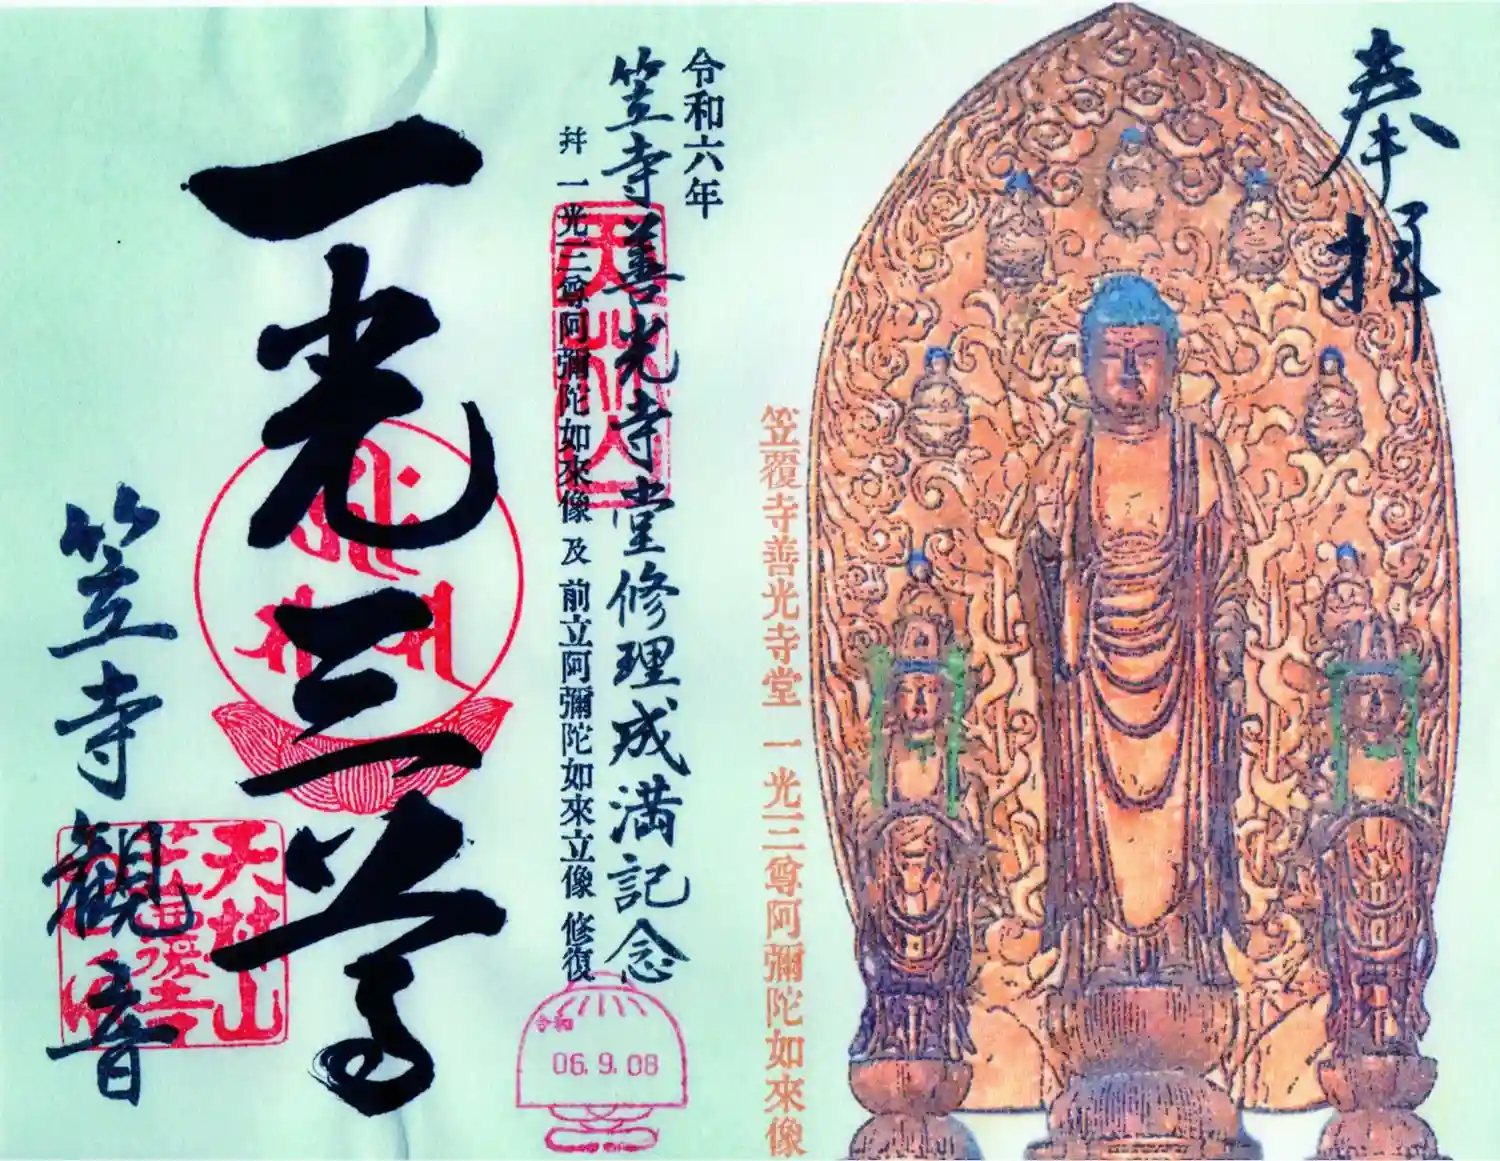 奉拝
笠覆寺善光寺堂 一光三尊阿彌陀如來像
令和六年
笠寺善光寺堂修理成満記念
并 一光三尊阿彌陀如來像 及 前立阿彌陀如來立像 修復
令和
06.9.08
一光三尊
笠寺観音
天林山